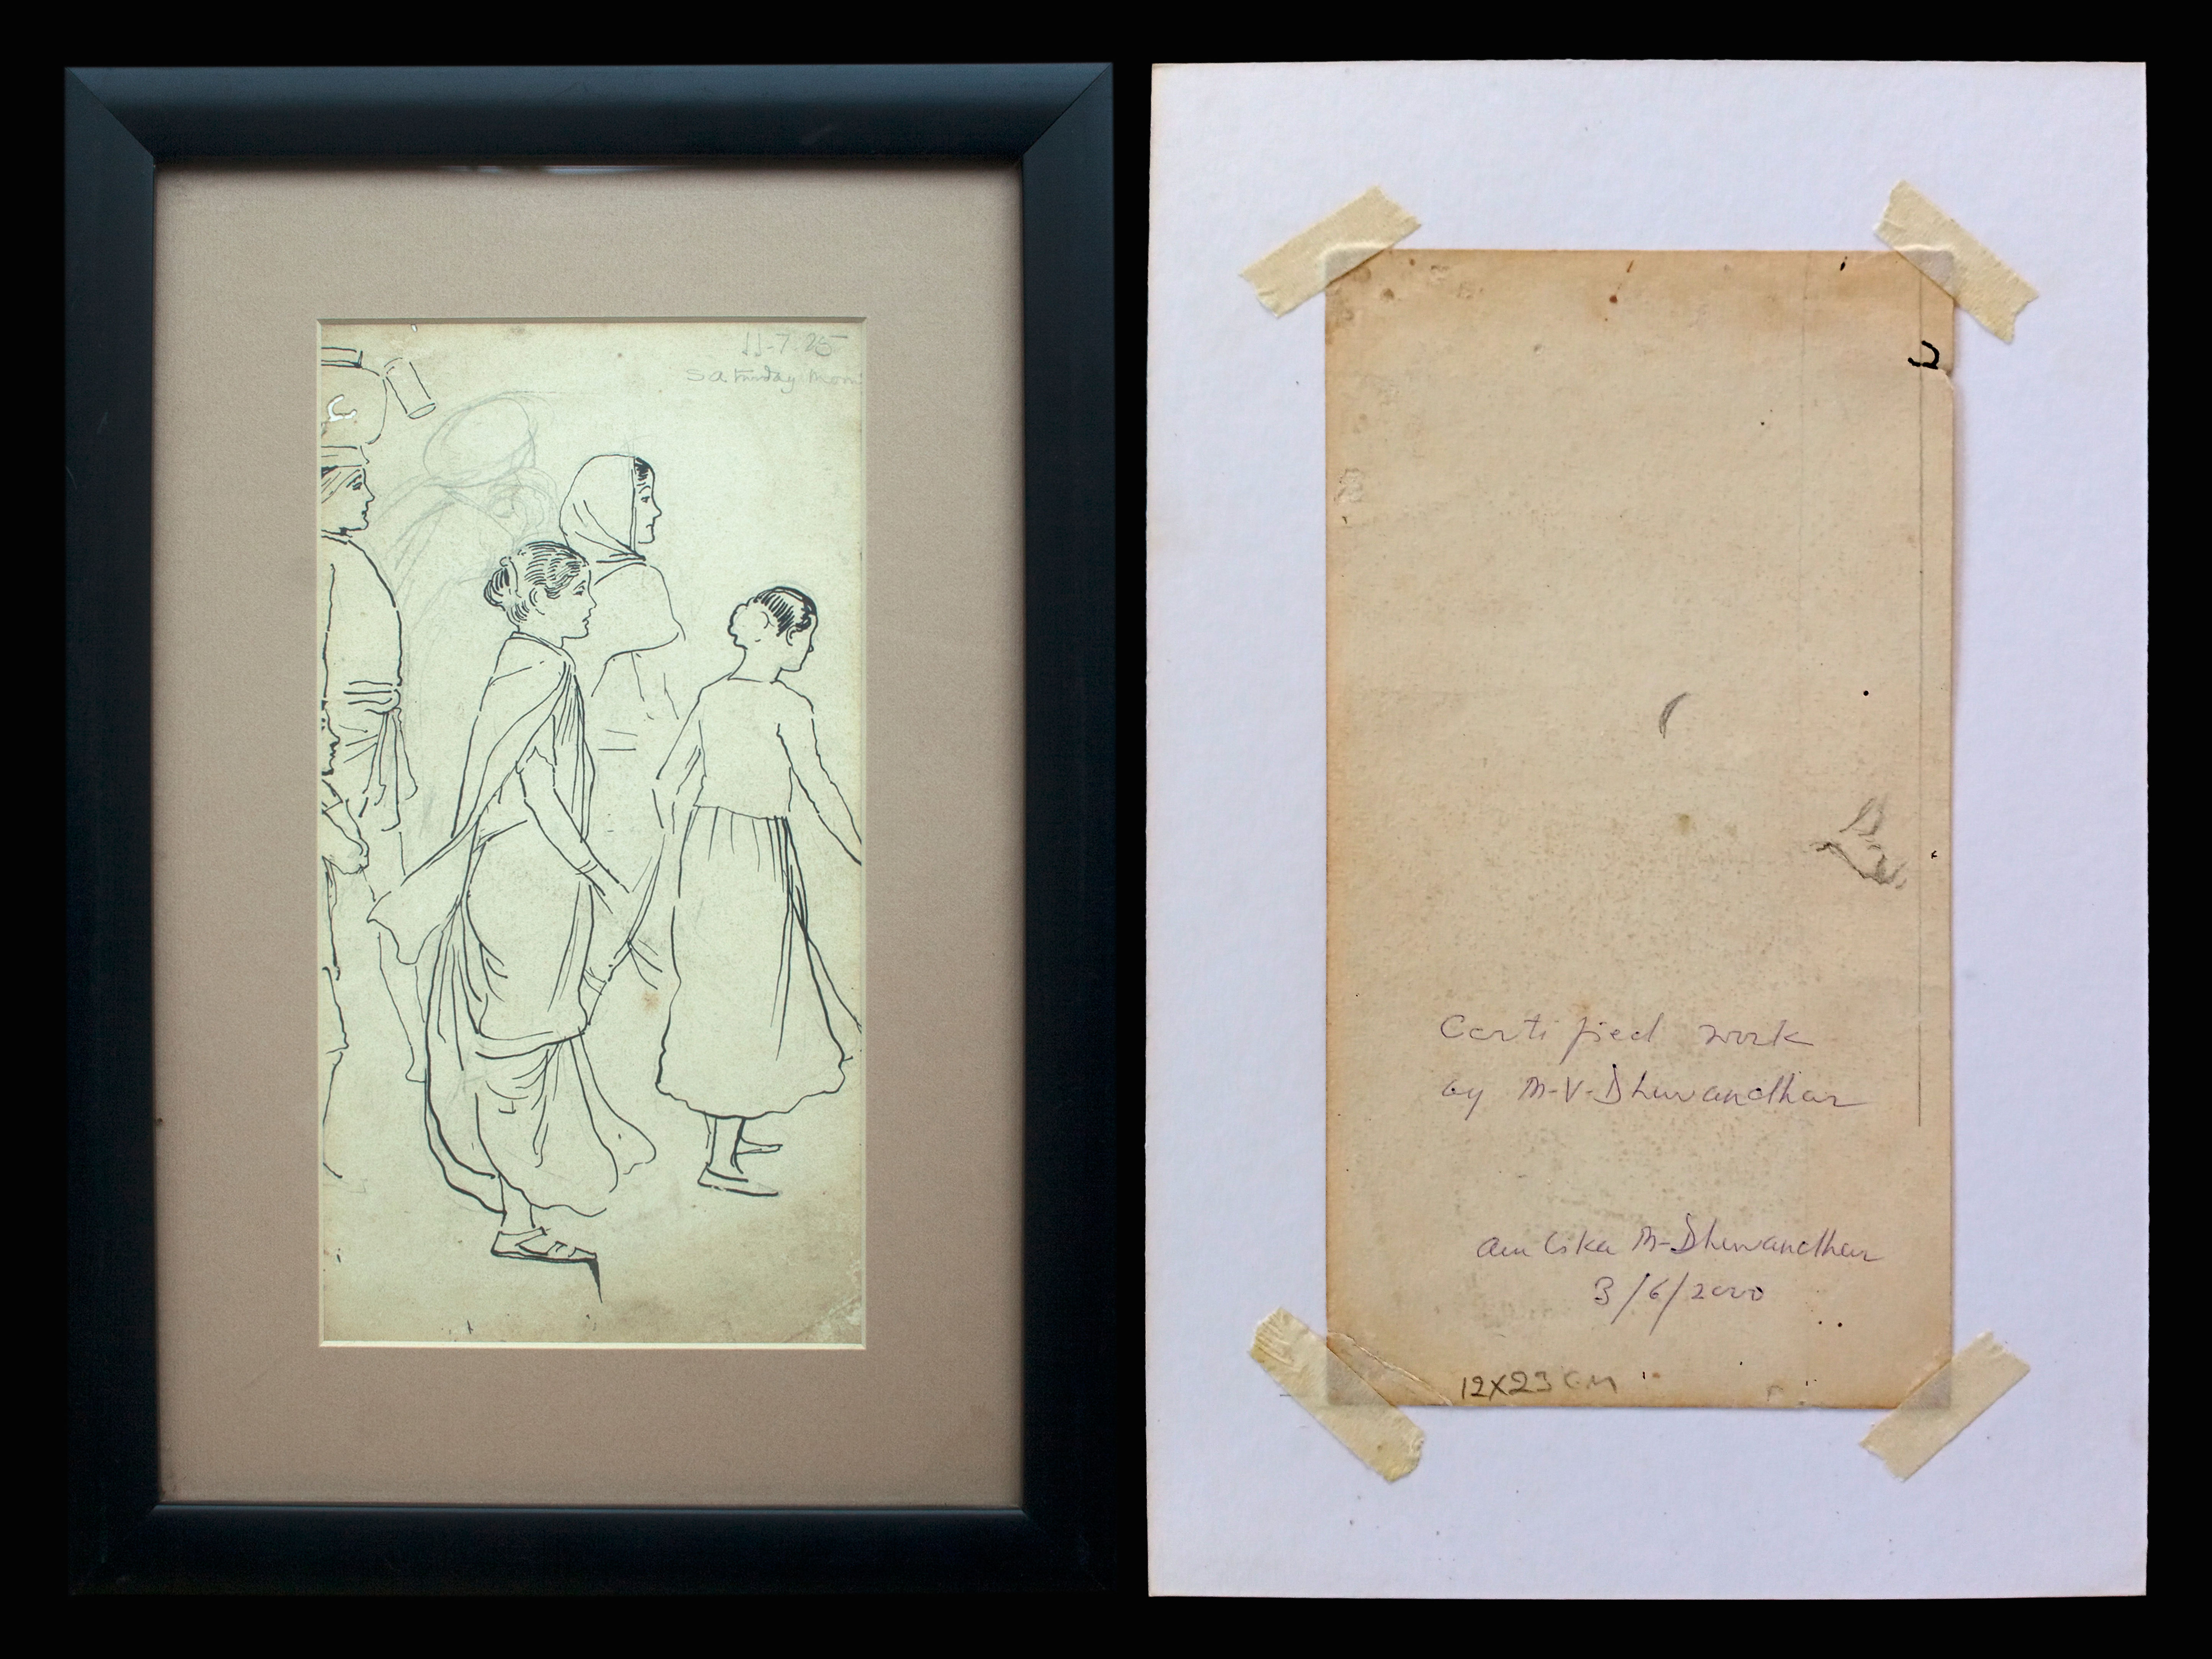 11-7-25
Saturday Morn
Certified work
by M-V-Dhurandhar
Ambika M-Dhurandhar
3/6/2000
12X23 CM